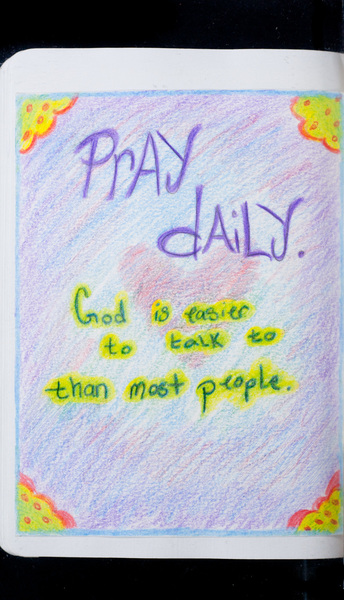 PrAY
dAiLY.
God is easier
to talk to
than most people.